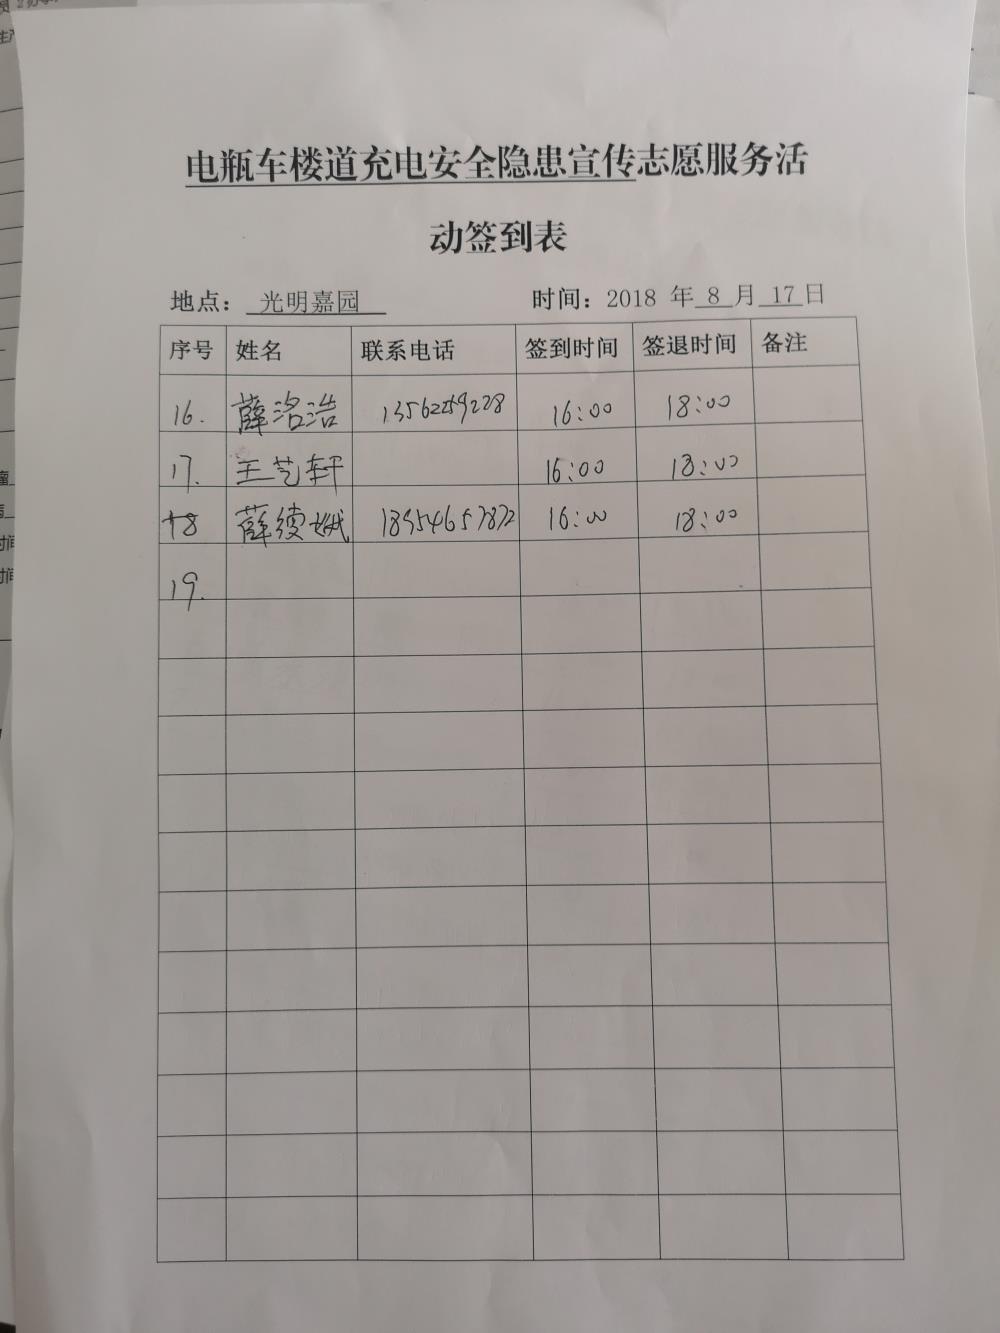 电瓶车楼道充电安全隐患宣传志愿服务活
动签到表
地点： 光明嘉园 时间：2018 年 8 月 17 日
序号 姓名 联系电话 签到时间 签退时间 备注
16. 薛洺浩 13562259228 16:00 18:00
17. 王艺轩 16:00 18:00
18 薛续娥 18954657872 16:00 18:00
19.